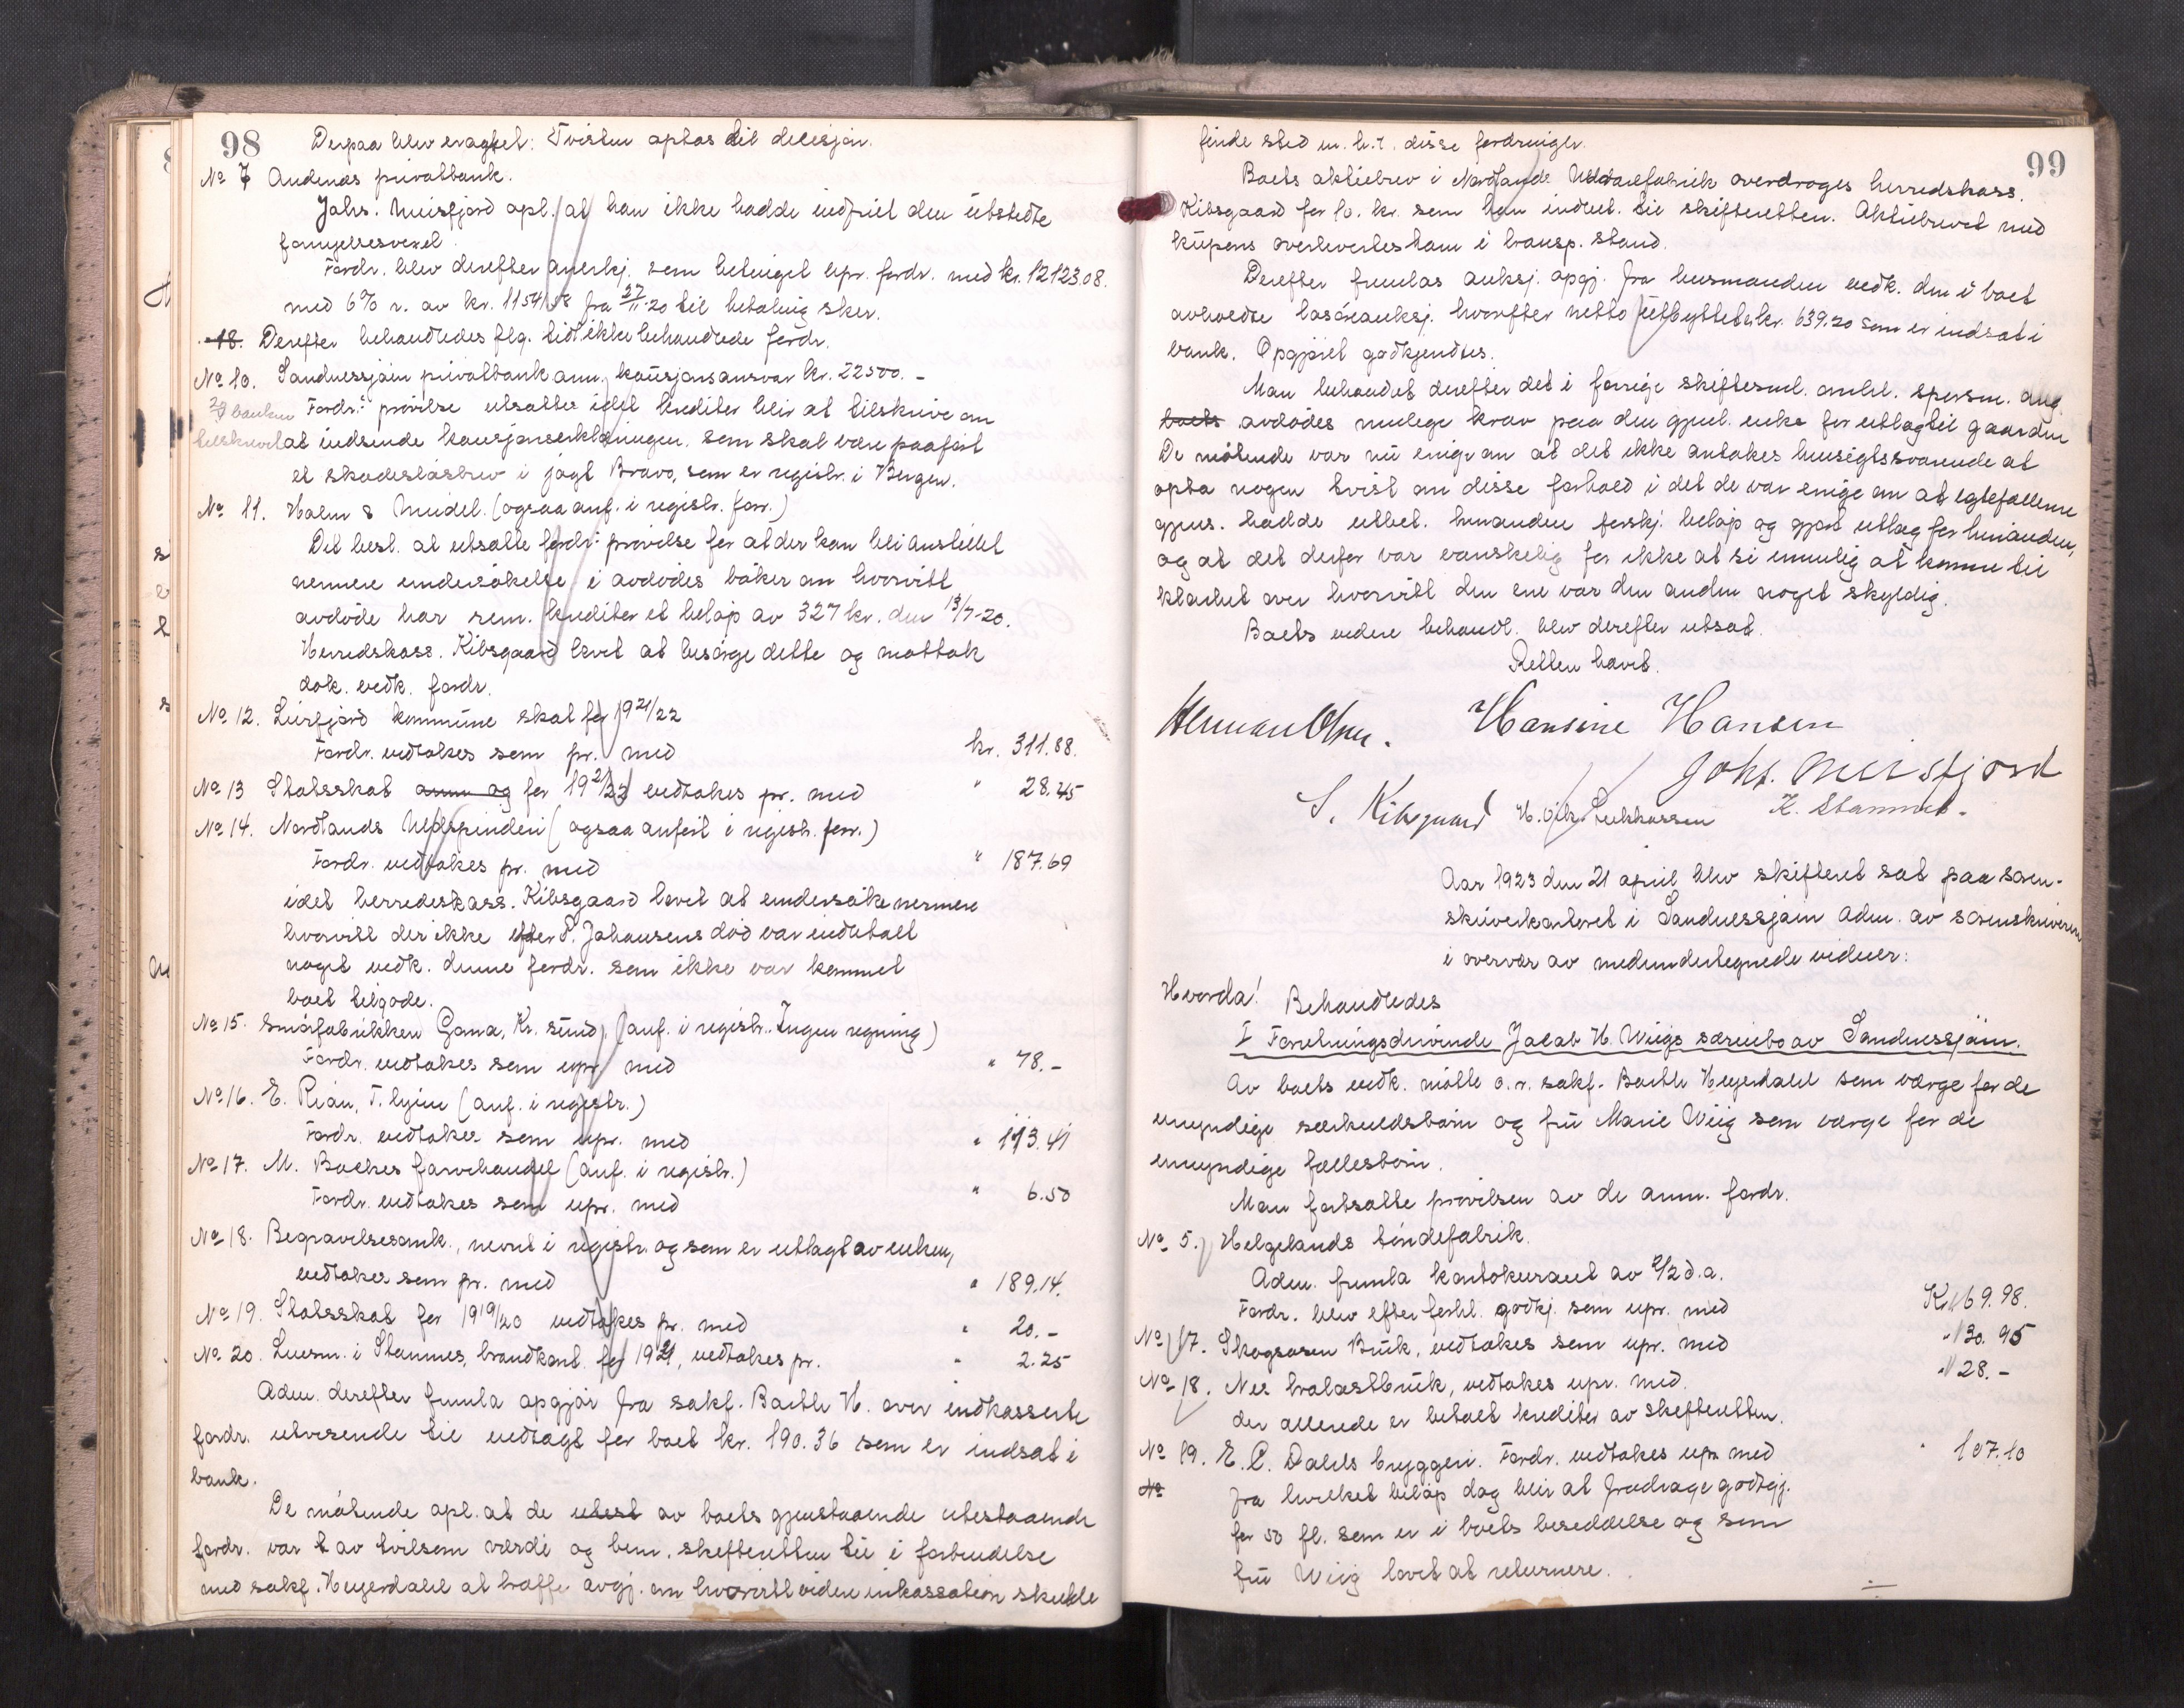 98
Derpaa blev eragtet: Tvisten optas til decisjon.
No 7 Andenæs privatbank.
Johs. Meisfjord opl. at han ikke hadde indfriet den utstedte
fornyelsesvexel.
Fordr. blev derefter anerkj. som betinget upr. fordr. med kr. 12123.08.
med 6% r. av kr. 11541.58 fra 27/11-20 til betaling sker.
18. Derefter behandledes flg. tidl. ikke behandlede fordr.
No 10. Sandnessjøen privatbank anm. kausjonsansvar kr. 22500.-
banken Fordr.s prøvelse utsattes idet kreditor blir at tilskrive om
tilskrevet at indsende kausjonserklæringen, som skal være paaført
et skadesløsbrev i jagt Bravo, som er registr. i Bergen.
No 11. Holm & Meidel. (ogsaa anf. i registr. forr.)
Det besl. at utsætte fordr.s prøvelse for at der kan bli anstillet
nermere undersøkelse i avdødes bøker om hvorvidt
avdøde har rem. kreditor et beløp av 327 kr. den 13/7-20.
Herredskass. Kibsgaard lovet at besørge dette og mottok
dok. vedk. fordr.
No 12. Leirfjord kommune skat for 1921/22
Fordr. vedtokes som pr. med kr. 311.88.
No 13 Statsskat anm og for 1921/22 vedtokes pr. med " 28.45
No 14. Nordlands Uldspinderi (ogsaa anført i registr. forr.)
Fordr. vedtokes pr. med " 187.69
idet herredskass. Kibsgaard lovet at undersøke nermere
hvorvidt der ikke efter P. Johansens død var indbetalt
noget vedk. denne fordr. som ikke var kommet
boet tilgode.
No 15. Smørfabrikken Gama, Kr. sund, (anf. i registr. Ingen regning)
Fordr. vedtokes som upr. med " 78.-
No 16. E. Rian, T. hjem (anf. i registr.)
Fordr. vedtokes som upr. med " 113.41
No 17. M. Backes farvehandel (anf. i registr.)
Fordr. vedtokes som upr. med " 6.50
No 18. Begravelsesomk., nevnt i registr. og som er utlagt av enken,
vedtokes som pr. med " 189.14.
No 19. Statsskat for 1919/20 vedtokes pr. med " 20.-
No 20. Luesm. i Stamnes, brandkont. for 1921, vedtokes pr. " 2.25
Adm. derefter fremla opgjør fra sakf. Barthr H. over indkasserte
fordr. utvisende til indtægt for boet kr. 190.36 som er indsat i
bank.
De møtende opl. at de utest av boets gjenstaaende utestaaende
fordr. var av tvilsom værdi og bem. skifteretten til i forbindelse
med sakf. Heyerdahl at træffe avgj. om hvorvidt viden inkassation skulde
99
finde sted m. h. t. disse fordringer.
Boets aktiebrev i Nordlands Uldvarefabrik overdroges herredskass.
Kibsgaard for 10. kr. som han indbet. til skifteretten. Aktiebrevet med
kupens overleveredes ham i transp. stand.
Derefter fremlas auksj. opgj. fra lensmanden vedk. den i boet
avholdte løsøreauksj. hvorefter netto utbyttet er kr. 639.20 som er indsat i
bank. Opgjøret godkjendtes.
Man behandlet derefter det i forrige skiftesml. omhl. spørsm. ang.
boets avdødes mulige krav paa den gjenl. enke for utlæg til gaarden
De møtende var nu enige om at det ikke antokes hensigtssvarende at
opta nogen tvist om disse forhold i det de var enige om at egtefællerne
gjens. hadde utbet. hinanden forskj. beløp og gjort utlæg for hinanden,
og at det derfor var vanskelig for ikke at si umulig at komme til
klarhet over hvorvidt den ene var den anden noget skyldig.
Boets videre behandl. blev derefter utsat.
Retten hævet.
Herman Olsen. Hansine Hansen
Johs. Meisfjord
S. Kibsgaard K. Stamnes.
Aar 1923 den 21 april blev skifteret sat paa soren-
skriverkontoret i Sandnessjøen adm. av sorenskriveren
i overvær av medundertegnede vidner:
Hvorda! Behandledes
I Forretningsdrivende Jacob H. Wiigs særeiebo av Sandnessjøen.
Av boets vedk. møtte o. r. sakf. Barthr Heyerdahl som værge for de
umyndige særkuldsbørn og fru Marie Wiig som værge for de
umyndige fællesbørn.
Man fortsatte prøvelsen av de anm. fordr.
No 5. Helgelands tøndefabrik.
Adm. fremla kontokurant av 2/2 d.a.
Fordr. blev efter forhl. godkj. som upr. med Kr. 169.98.
No 17. Skogsosen Bruk, vedtokes som upr. med " 130.95
No 18. Nes trælastbruk, vedtokes upr. med. " 128.-
der allerede er betalt kreditor av skifteretten.
No 19. E. C. Dahls bryggeri. Fordr. vedtokes upr. med " 107.10
No fra hvilket beløp dog blir at fradrage godtgj.
for 50 fl. som er i boets besiddelse og som
fru Wiig lovet at returnere.